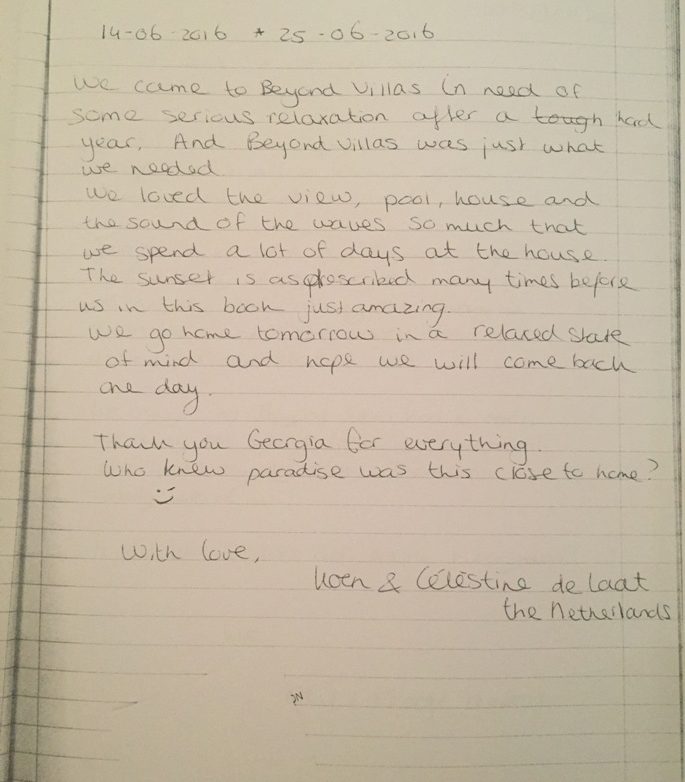 14-06-2016 * 25-06-2016
We came to Beyond Villas in need of
some serious relaxation after a tough had
year. And Beyond Villas was just what
we needed.
We loved the view, pool, house and
the sound of the waves so much that
we spend a lot of days at the house.
The sunset is as prescribed many times before
us in this book just amazing.
We go home tomorrow in a relaxed state
of mind and hope we will come back
one day.
Thank you Georgia for everything.
Who knew paradise was this close to home?
:)
With love,
Koen & Célèstine de Laat
the Netherlands